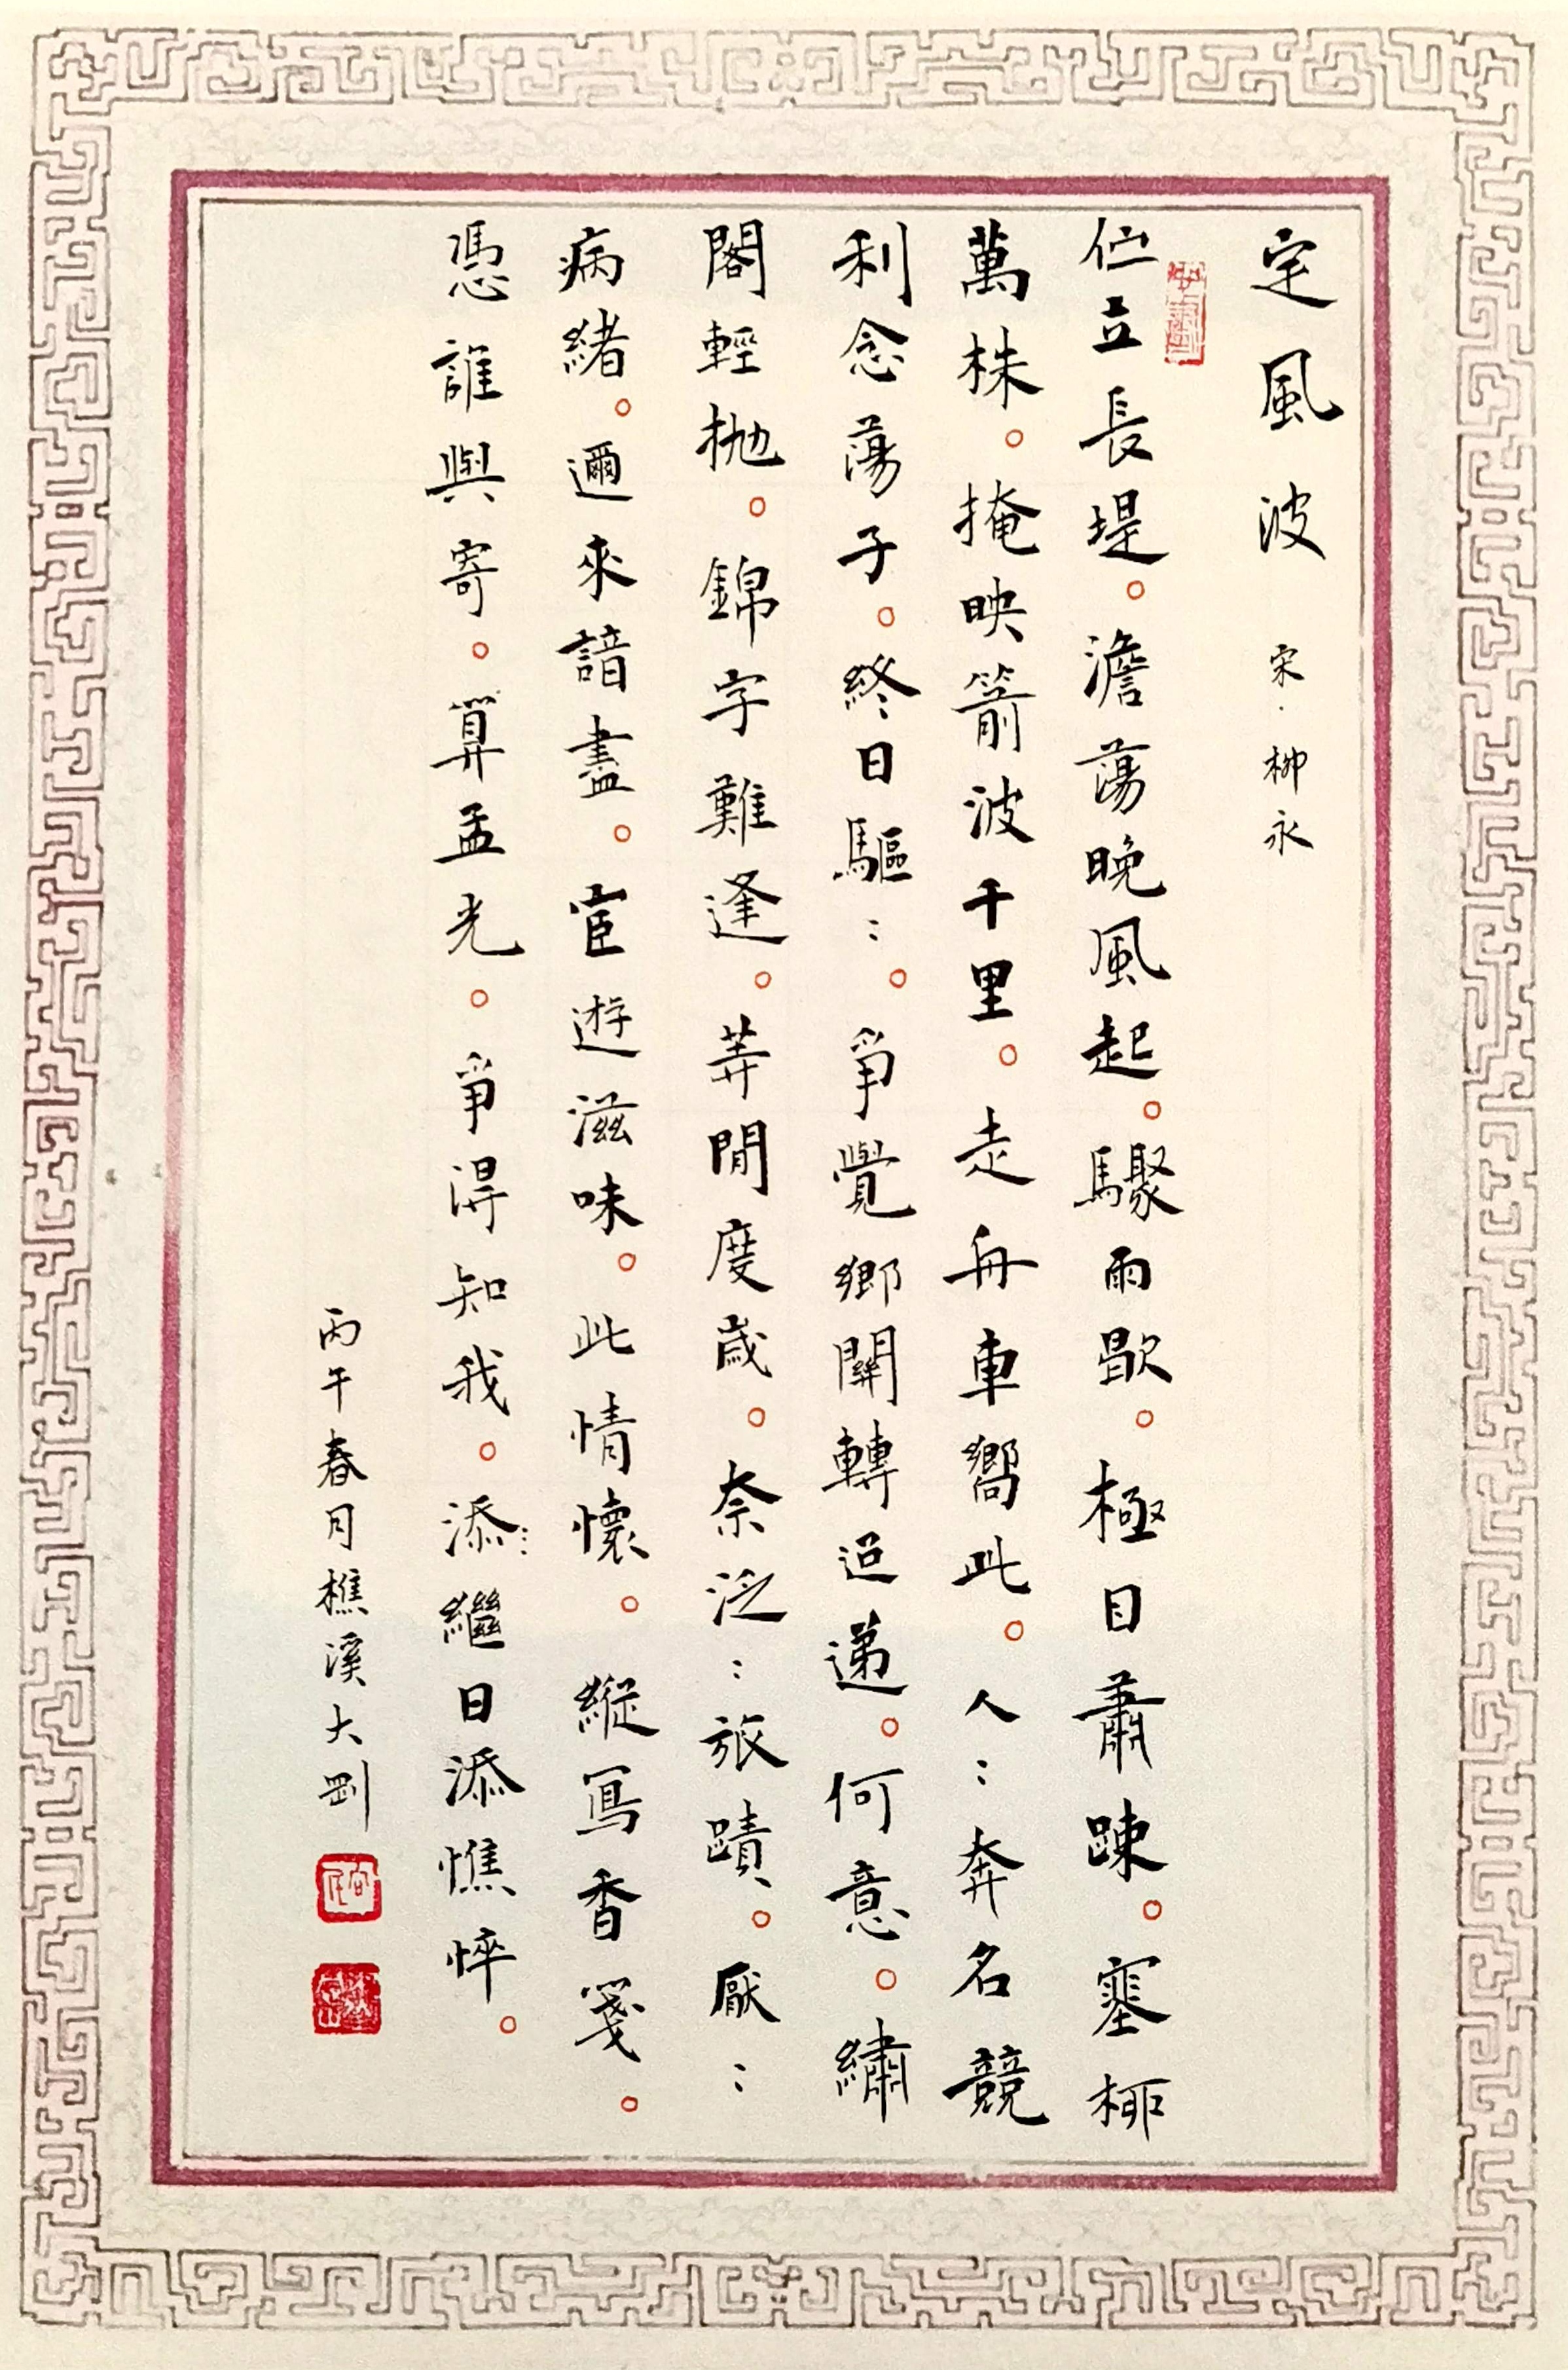 定風波 宋·柳永
伫立長堤。澹蕩晚風起。驟雨歇。極目蕭踈。塞柳
萬株。掩映箭波千里。走舟車嚮此。人:奔名競
利念蕩子。終日驅:。爭覺鄉關轉迢遞。何意。繡
閣輕抛。錦字難逢。等閒度歲。奈泛:旅蹟。厭:
病緒。邇來諳盡。宦遊滋味。此情懷。縱寫香箋。
憑誰與寄。算孟光。爭得知我。添繼日添憔悴。
丙午春月樵溪大剛